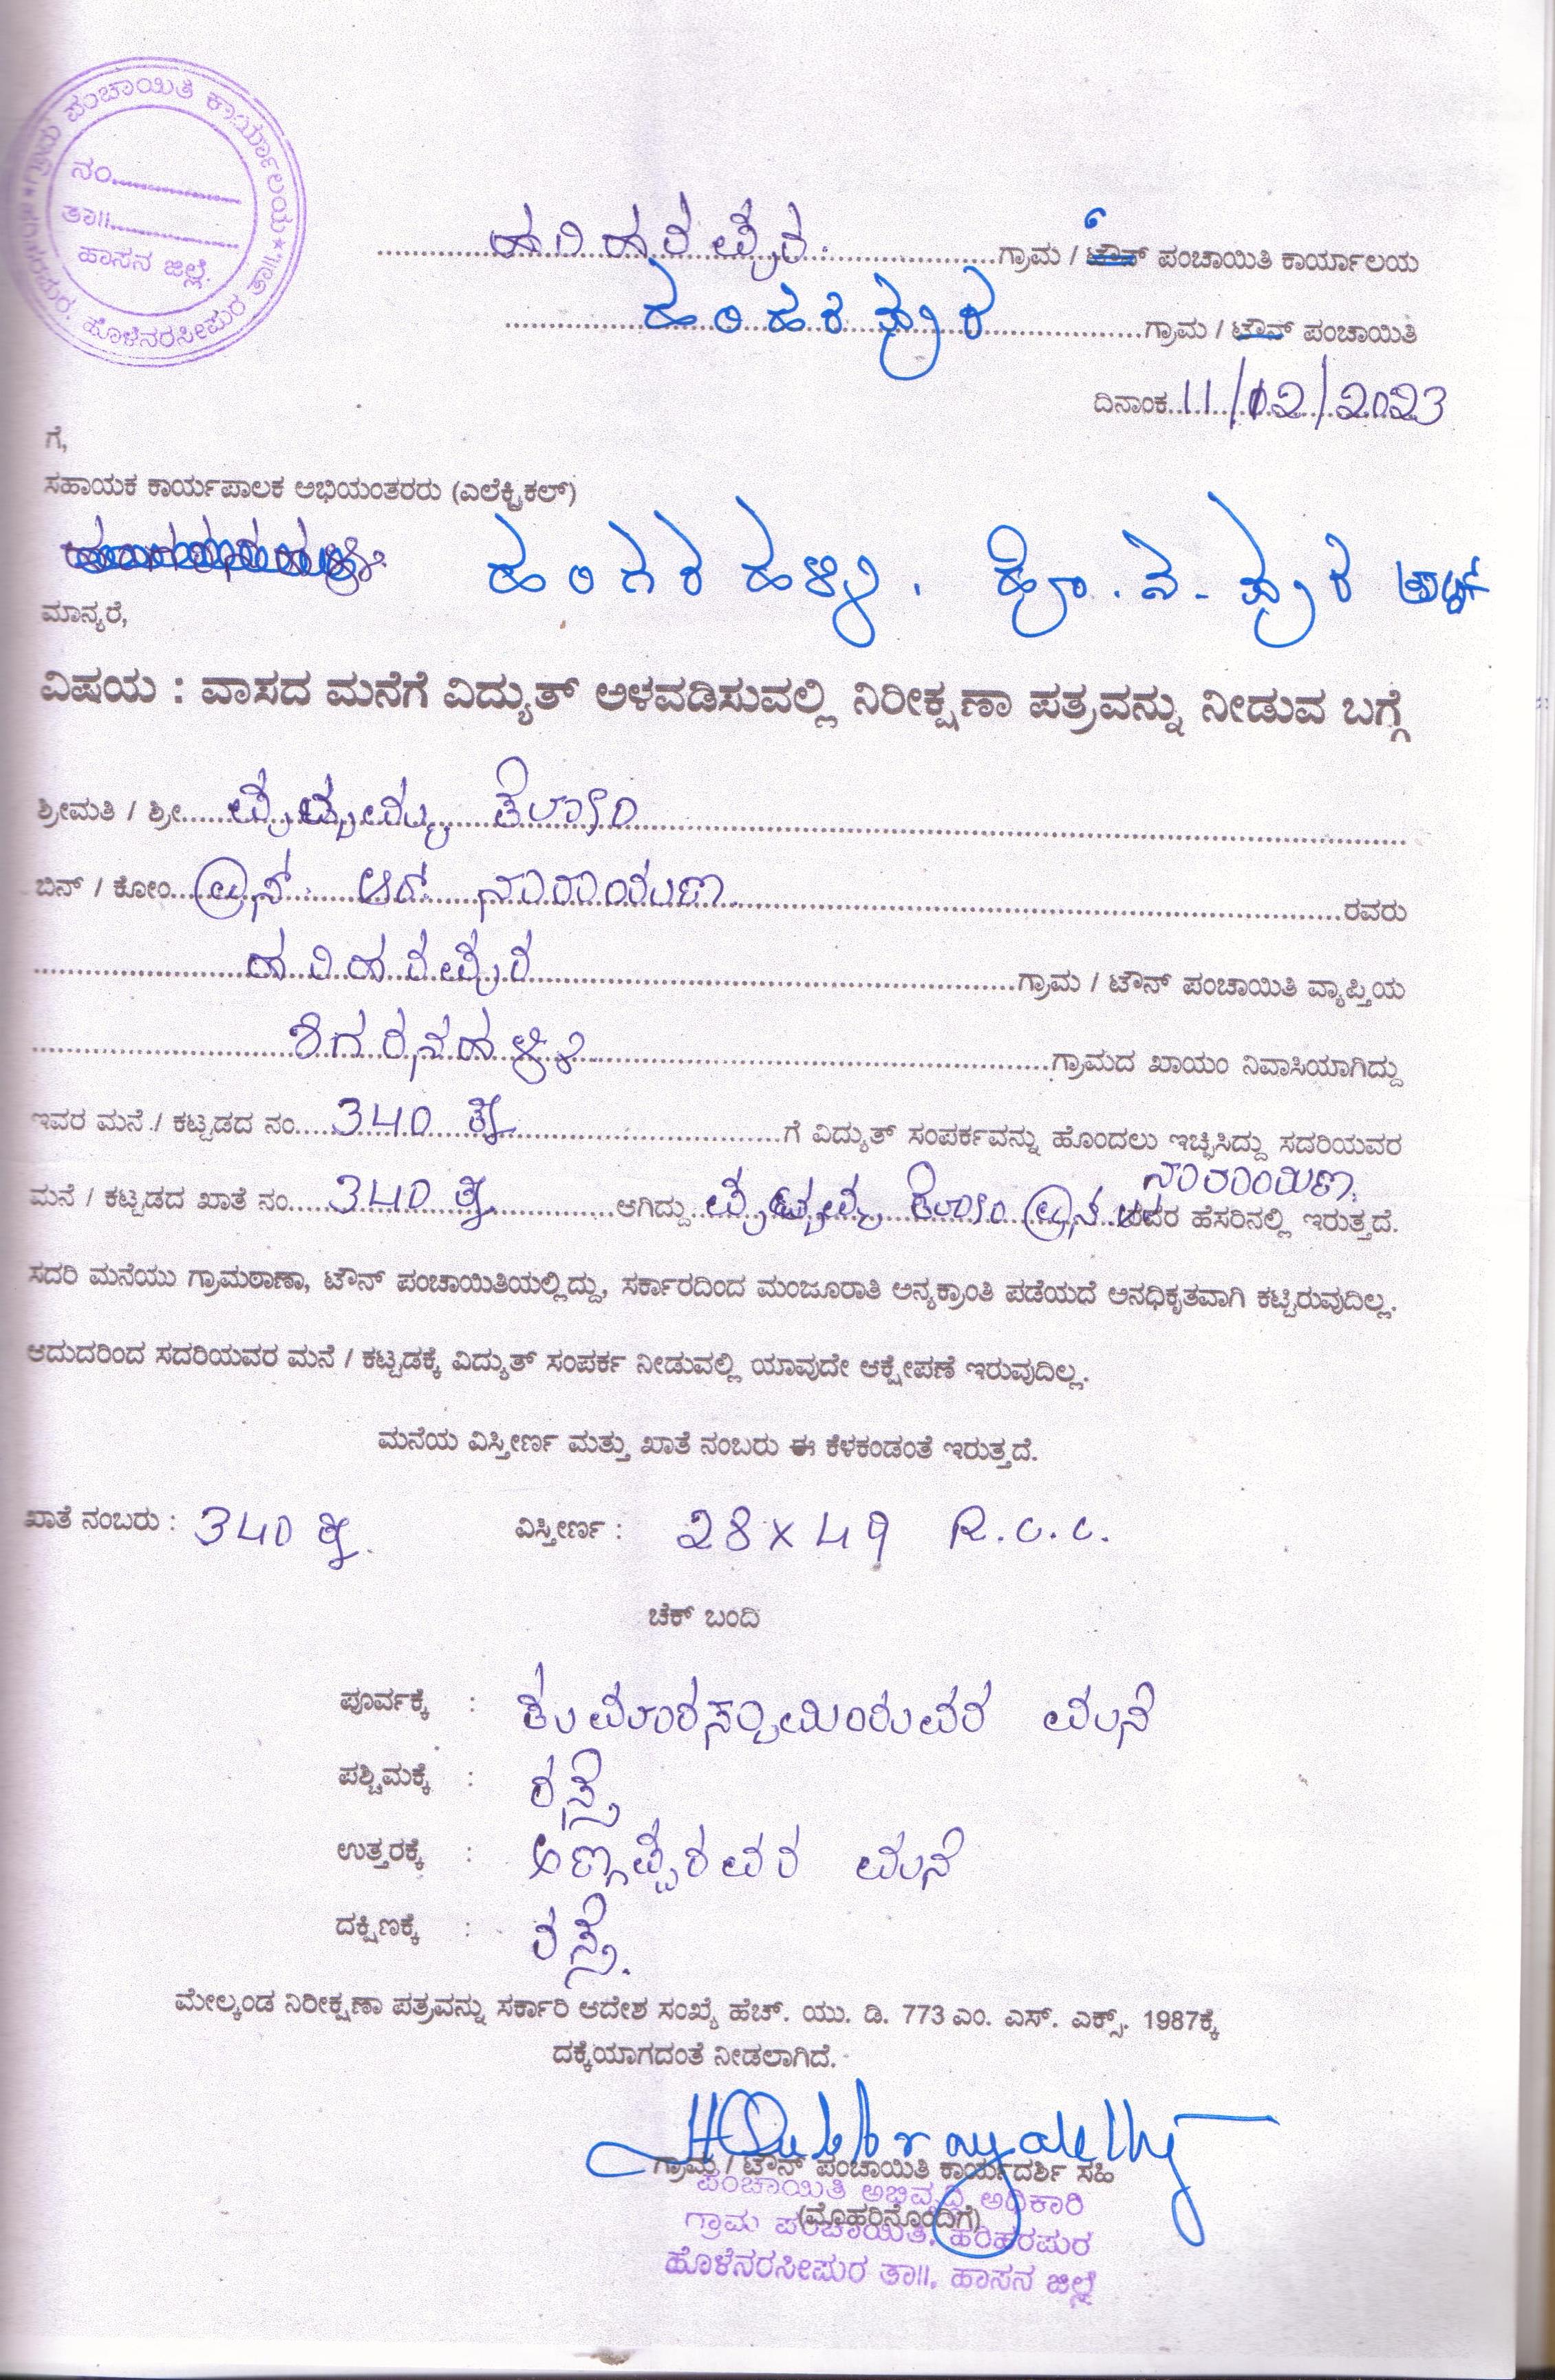 ಗ್ರಾಮ ಪಂಚಾಯಿತಿ ಕಾರ್ಯಾಲಯ
ನಂ
ತಾ॥
ಹಾಸನ ಜಿಲ್ಲೆ.
ಹರಿಹರಪುರ, ಹೊಳೆನರಸೀಪುರ ತಾ॥
ಹರಿಹರಪುರ ಗ್ರಾಮ / ಟೌನ್ ಪಂಚಾಯಿತಿ ಕಾರ್ಯಾಲಯ
ಹರಿಹರಪುರ ಗ್ರಾಮ / ಟೌನ್ ಪಂಚಾಯಿತಿ
ದಿನಾಂಕ 11/02/2023
ಗೆ,
ಸಹಾಯಕ ಕಾರ್ಯಪಾಲಕ ಅಭಿಯಂತರರು (ಎಲೆಕ್ಟ್ರಿಕಲ್)
ಹಂಗರಹಳ್ಳಿ. ಹೊ.ನ.ಪುರ
ಮಾನ್ಯರೆ,
ವಿಷಯ : ವಾಸದ ಮನೆಗೆ ವಿದ್ಯುತ್ ಅಳವಡಿಸುವಲ್ಲಿ ನಿರೀಕ್ಷಣಾ ಪತ್ರವನ್ನು ನೀಡುವ ಬಗ್ಗೆ
ಶ್ರೀಮತಿ / ಶ್ರೀ ಪುಟ್ಟಮ್ಮ ಕೋಂ
ಬಿನ್ / ಕೋಂ ಆರ್ ನಾರಾಯಣ ರವರು
ಹರಿಹರಪುರ ಗ್ರಾಮ / ಟೌನ್ ಪಂಚಾಯಿತಿ ವ್ಯಾಪ್ತಿಯ
ಶಿಗರನಹಳ್ಳಿ ಗ್ರಾಮದ ಖಾಯಂ ನಿವಾಸಿಯಾಗಿದ್ದು
ಇವರ ಮನೆ / ಕಟ್ಟಡದ ನಂ 340 ಗೆ ವಿದ್ಯುತ್ ಸಂಪರ್ಕವನ್ನು ಹೊಂದಲು ಇಚ್ಛಿಸಿದ್ದು ಸದರಿಯವರ
ಮನೆ / ಕಟ್ಟಡದ ಖಾತೆ ನಂ 340 ಆಗಿದ್ದು ಪುಟ್ಟಮ್ಮ ಕೋಂ ನಾರಾಯಣ ರವರ ಹೆಸರಿನಲ್ಲಿ ಇರುತ್ತದೆ.
ಸದರಿ ಮನೆಯು ಗ್ರಾಮಠಾಣಾ, ಟೌನ್ ಪಂಚಾಯಿತಿಯಲ್ಲಿದ್ದು, ಸರ್ಕಾರದಿಂದ ಮಂಜೂರಾತಿ ಅನ್ಯಕ್ರಾಂತಿ ಪಡೆಯದೆ ಅನಧಿಕೃತವಾಗಿ ಕಟ್ಟಿರುವುದಿಲ್ಲ.
ಆದುದರಿಂದ ಸದರಿಯವರ ಮನೆ / ಕಟ್ಟಡಕ್ಕೆ ವಿದ್ಯುತ್ ಸಂಪರ್ಕ ನೀಡುವಲ್ಲಿ ಯಾವುದೇ ಆಕ್ಷೇಪಣೆ ಇರುವುದಿಲ್ಲ.
ಮನೆಯ ವಿಸ್ತೀರ್ಣ ಮತ್ತು ಖಾತೆ ನಂಬರು ಈ ಕೆಳಕಂಡಂತೆ ಇರುತ್ತದೆ.
ಖಾತೆ ನಂಬರು : 340 ವಿಸ್ತೀರ್ಣ : 28 x 49 R.C.C.
ಚೆಕ್ ಬಂದಿ
ಪೂರ್ವಕ್ಕೆ : ಕುಮಾರಸ್ವಾಮಿಯವರ ಮನೆ
ಪಶ್ಚಿಮಕ್ಕೆ : ರಸ್ತೆ
ಉತ್ತರಕ್ಕೆ : ಅಣ್ಣಪ್ಪರವರ ಮನೆ
ದಕ್ಷಿಣಕ್ಕೆ : ರಸ್ತೆ.
ಮೇಲ್ಕಂಡ ನಿರೀಕ್ಷಣಾ ಪತ್ರವನ್ನು ಸರ್ಕಾರಿ ಆದೇಶ ಸಂಖ್ಯೆ ಹೆಚ್. ಯು. ಡಿ. 773 ಎಂ. ಎಸ್. ಎಕ್ಸ್. 1987ಕ್ಕೆ
ದಕ್ಕೆಯಾಗದಂತೆ ನೀಡಲಾಗಿದೆ.
ಗ್ರಾಮ / ಟೌನ್ ಪಂಚಾಯಿತಿ ಕಾರ್ಯದರ್ಶಿ ಸಹಿ
(ಮೊಹರಿನೊಂದಿಗೆ)
ಪಂಚಾಯಿತಿ ಅಭಿವೃದ್ಧಿ ಅಧಿಕಾರಿ
ಗ್ರಾಮ ಪಂಚಾಯಿತಿ, ಹರಿಹರಪುರ
ಹೊಳೆನರಸೀಪುರ ತಾ॥, ಹಾಸನ ಜಿಲ್ಲೆ